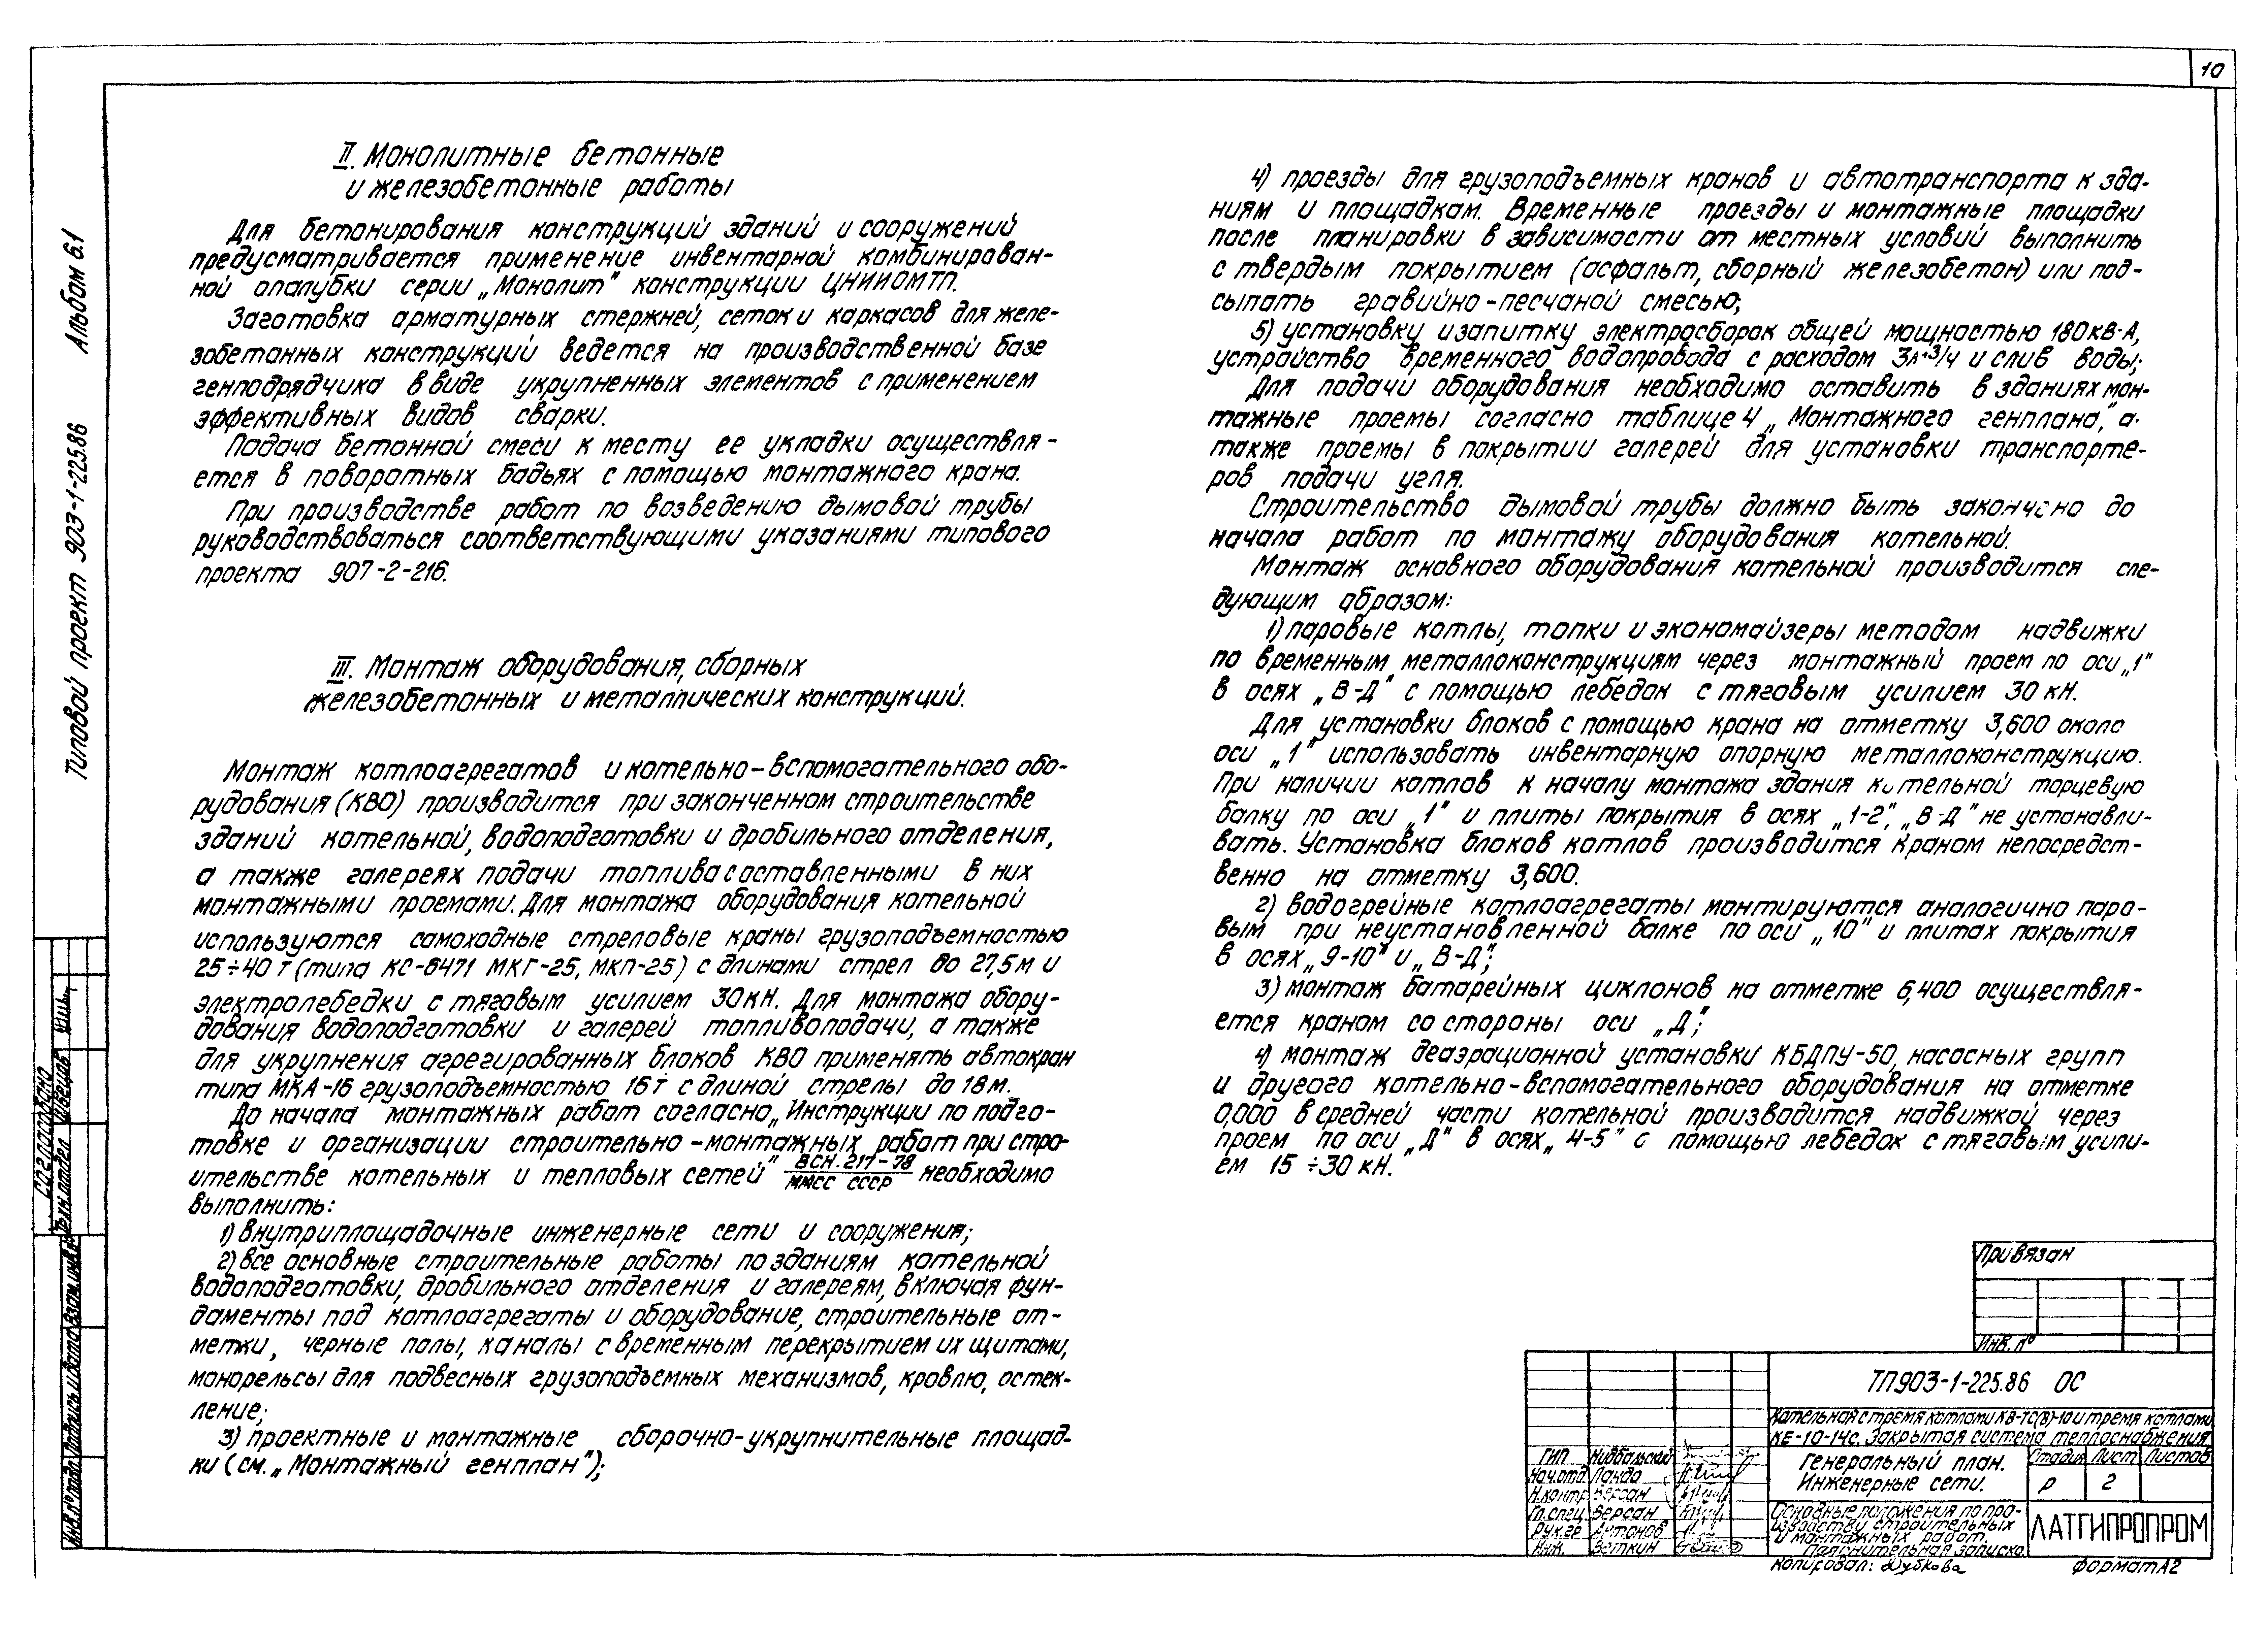 10
Альбом 6.1
Типовой проект 903-1-225.86
II. Монолитные бетонные
и железобетонные работы
Для бетонирования конструкций зданий и сооружений
предусматривается применение инвентарной комбинирован-
ной опалубки серии „Монолит" конструкции ЦНИИОМТП.
Заготовка арматурных стержней, сеток и каркасов для желе-
зобетонных конструкций ведется на производственной базе
генподрядчика в виде укрупненных элементов с применением
эффективных видов сварки.
Подача бетонной смеси к месту ее укладки осуществля-
ется в поворотных бадьях с помощью монтажного крана.
При производстве работ по возведению дымовой трубы
руководствоваться соответствующими указаниями типового
проекта 907-2-216.
III. Монтаж оборудования, сборных
железобетонных и металлических конструкций.
Монтаж котлоагрегатов и котельно-вспомогательного обо-
рудования (КВО) производится при законченном строительстве
зданий котельной, водоподготовки и дробильного отделения,
а также галереях подачи топлива с оставленными в них
монтажными проемами. Для монтажа оборудования котельной
используются самоходные стреловые краны грузоподъемностью
25÷40 т (типа КС-6471 МКГ-25, МКП-25) с длинами стрел до 27,5м и
электролебедки с тяговым усилием 30кН. Для монтажа обору-
дования водоподготовки и галерей топливоподачи, а также
для укрупнения агрегированных блоков КВО применять автокран
типа МКА-16 грузоподъемностью 16т с длиной стрелы до 18м.
До начала монтажных работ согласно „Инструкции по подго-
товке и организации строительно-монтажных работ при стро-
ительстве котельных и тепловых сетей" ВСН.217-78 / ММСС СССР необходимо
выполнить:
1) внутриплощадочные инженерные сети и сооружения;
2) все основные строительные работы по зданиям котельной
водоподготовки, дробильного отделения и галереям, включая фун-
даменты под котлоагрегаты и оборудование, строительные от-
метки, черные полы, каналы с временным перекрытием их щитами,
монорельсы для подвесных грузоподъемных механизмов, кровлю, остек-
ление;
3) проектные и монтажные сборочно-укрупнительные площад-
ки (см. „Монтажный генплан");
4) проезды для грузоподъемных кранов и автотранспорта к зда-
ниям и площадкам. Временные проезды и монтажные площадки
после планировки в зависимости от местных условий выполнить
с твердым покрытием (асфальт, сборный железобетон) или под-
сыпать гравийно-песчаной смесью;
5) установку и запитку электросборок общей мощностью 180кВ·А,
устройство временного водопровода с расходом 3м³/ч и слив воды;
Для подачи оборудования необходимо оставить в зданиях мон-
тажные проемы согласно таблице 4 „Монтажного генплана", а
также проемы в покрытии галерей для установки транспорте-
ров подачи угля.
Строительство дымовой трубы должно быть закончено до
начала работ по монтажу оборудования котельной.
Монтаж основного оборудования котельной производится сле-
дующим образом:
1) паровые котлы, топки и экономайзеры методом надвижки
по временным металлоконструкциям через монтажный проем по оси „1"
в осях „В-Д" с помощью лебедок с тяговым усилием 30 кН.
Для установки блоков с помощью крана на отметку 3,600 около
оси „1" использовать инвентарную опорную металлоконструкцию.
При наличии котлов к началу монтажа здания котельной торцевую
балку по оси „1" и плиты покрытия в осях „1-2", „В-Д" не устанавли-
вать. Установка блоков котлов производится краном непосредст-
венно на отметку 3,600.
2) водогрейные котлоагрегаты монтируются аналогично паро-
вым при неустановленной балке по оси „10" и плитах покрытия
в осях „9-10" и „В-Д";
3) монтаж батарейных циклонов на отметке 6,400 осуществля-
ется краном со стороны оси „Д";
4) монтаж деаэрационной установки КБДПУ-50, насосных групп
и другого котельно-вспомогательного оборудования на отметке
0,000 в средней части котельной производится надвижкой через
проем по оси „Д" в осях „4-5" с помощью лебедок с тяговым усили-
ем 15÷30 кН.
Согласовано
Швецов
Инв.№ подл. Подпись и дата Взам.инв.№
Привязан
Инв. №
ТП903-1-225.86 ОС
Котельная с тремя котлами КВ-ТС(В)-10 и тремя котлами
КЕ-10-14с. Закрытая система теплоснабжения
ГИП Нидбальский
Нач.отд. Ланда
Н.контр Версан
Гл.спец. Версан
Рук.гр. Антонов
Инж. Веткин
Генеральный план.
Инженерные сети.
Стадия Лист Листов
Р 2
Основные положения по про-
изводству строительных
и монтажных работ.
Пояснительная записка.
ЛАТГИПРОПРОМ
Копировал: Дубкова
Формат А2